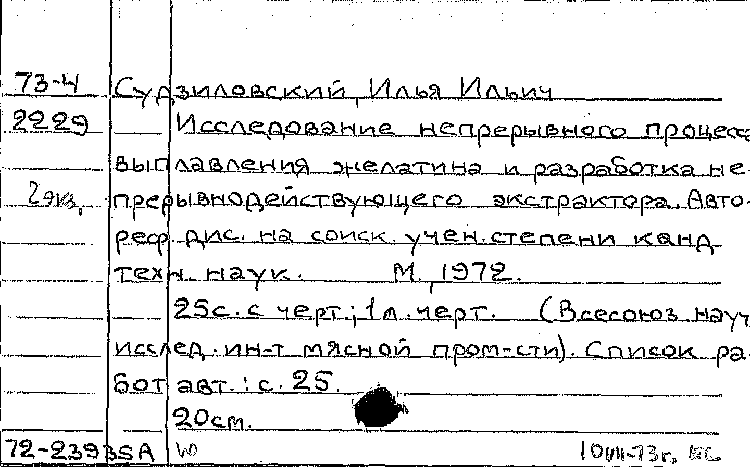 73-4 Судзиловский, Илья Ильич
2229 Исследование непрерывного процесса
выплавления желатина и разработка не-
2 экз. прерывнодействующего экстрактора. Авто-
реф. дис. на соиск. учен. степени канд.
техн. наук. М., 1972.
25 с. с черт.; 1 л. черт. (Всесоюз. науч.
исслед. ин-т мясной пром-сти). Список ра-
бот авт.: с. 25.
20 см.
72-23935А W 10 VII-73 г.